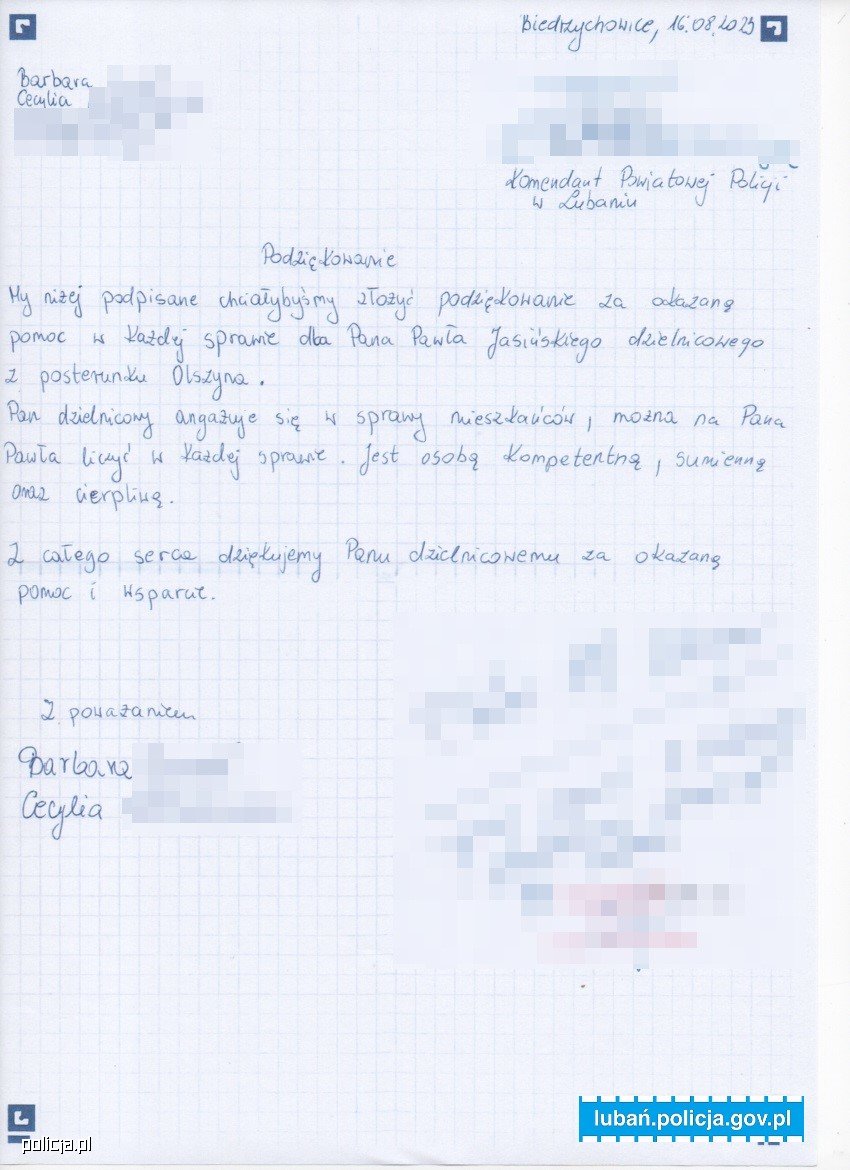 Biedrzychowice, 16.08.2023
Barbara
Cecylia
Komendant Powiatowej Policji
w Lubaniu
Podziękowanie
My niżej podpisane chciałybyśmy złożyć podziękowanie za okazaną
pomoc w każdej sprawie dla Pana Pawła Jasińskiego dzielnicowego
z posterunku Olszyna.
Pan dzielnicowy angażuje się w sprawy mieszkańców, można na Pana
Pawła liczyć w każdej sprawie. Jest osobą kompetentną, sumienną
oraz cierpliwą.
Z całego serca dziękujemy Panu dzielnicowemu za okazaną
pomoc i wsparcie.
Z poważaniem
Barbara
Cecylia
lubań.policja.gov.pl
policja.pl